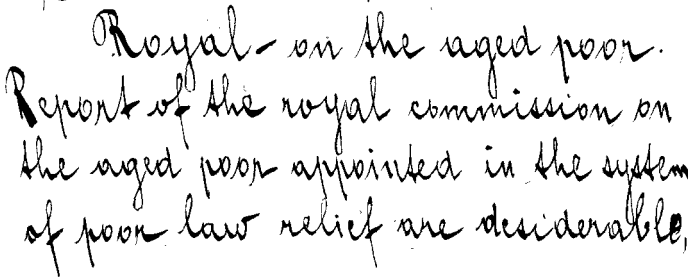 Royal - on the aged poor.
Report of the royal commission on
the aged poor appointed in the system
of poor law relief are desiderable,